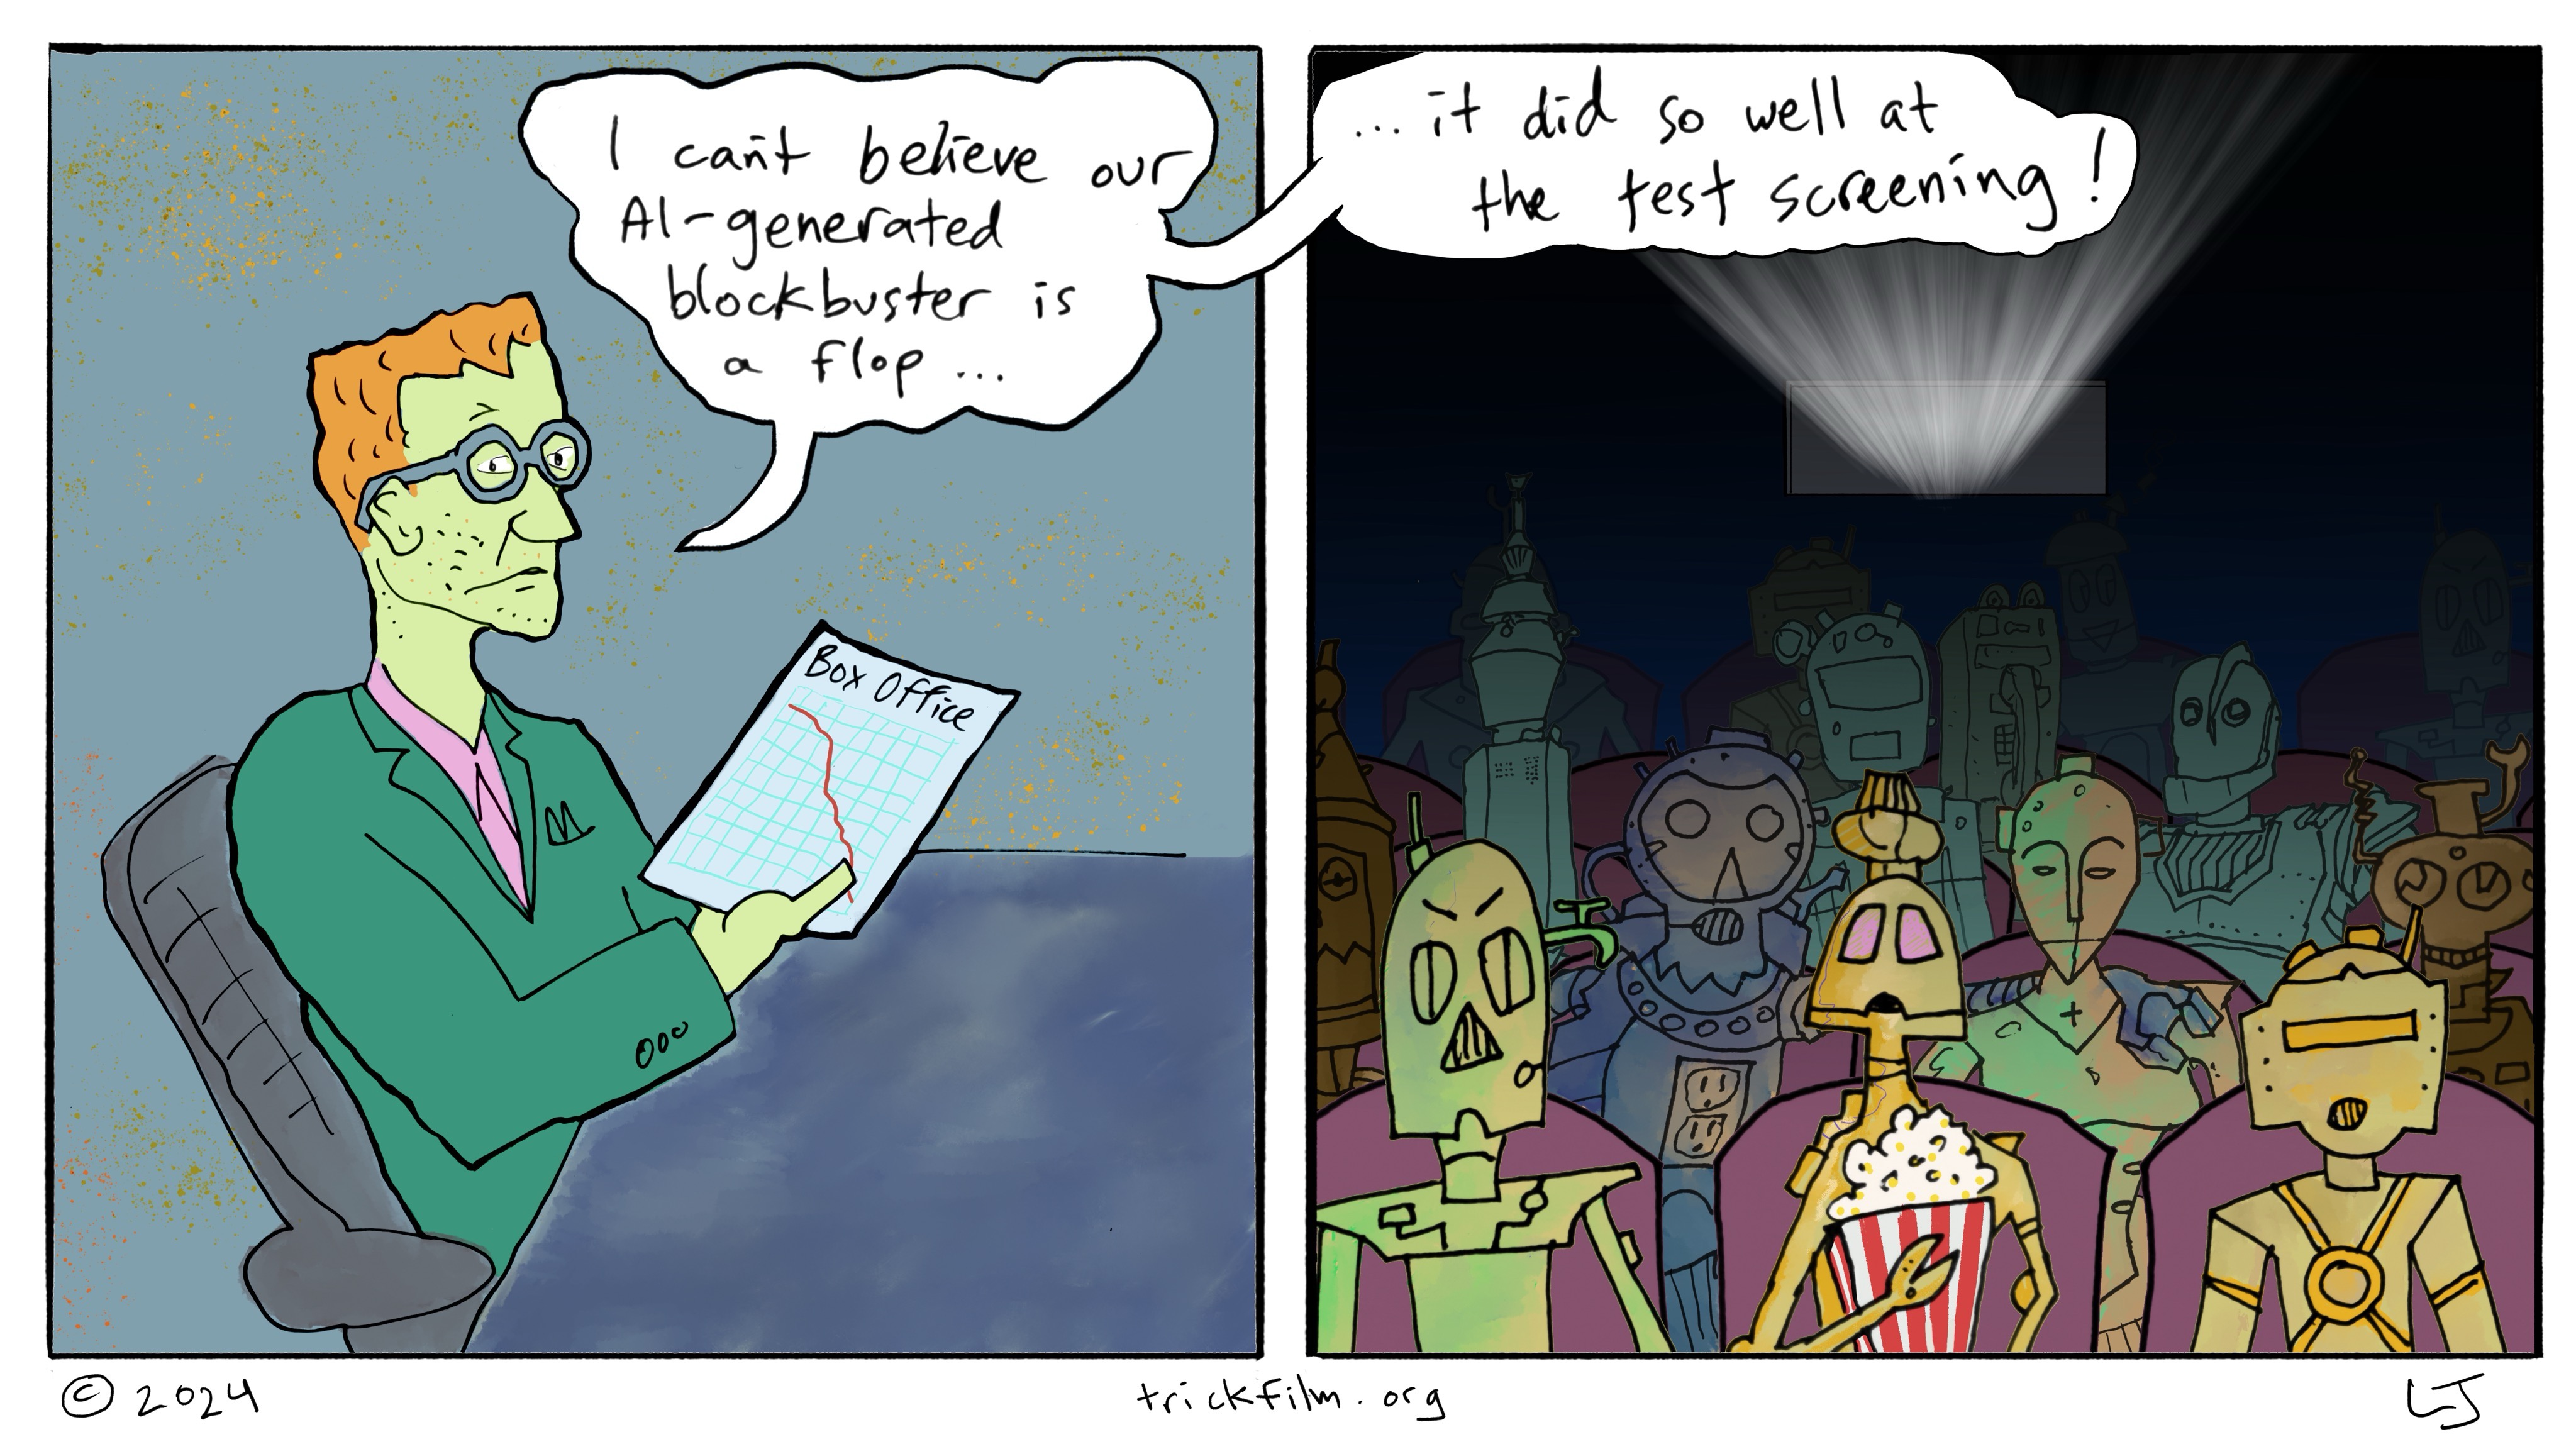 I can't believe our
AI-generated
blockbuster is
a flop...
...it did so well at
the test screening!
Box Office
© 2024
trickfilm.org
LJ